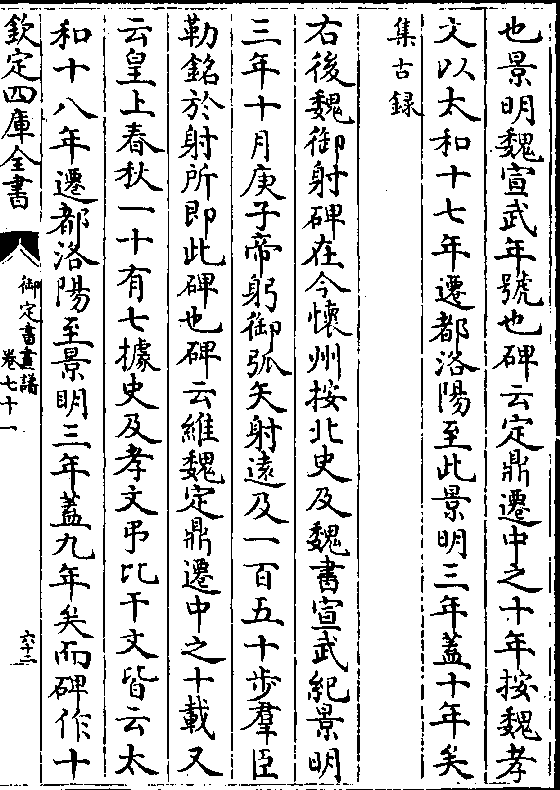 也景明魏宣武年號也碑云定鼎遷中之十年按魏孝
文以太和十七年遷都洛陽至此景明三年蓋十年矣
集古録
右後魏御射碑在今懷州按北史及魏書宣武紀景明
三年十月庚子帝躬御弧矢射遠及一百五十步羣臣
勒銘於射所即此碑也碑云維魏定鼎遷中之十載又
云皇上春秋一十有七據史及孝文弔比干文皆云太
和十八年遷都洛陽至景明三年蓋九年矣而碑作十
欽定四庫全書
御定書畫譜
卷七十一
六十三